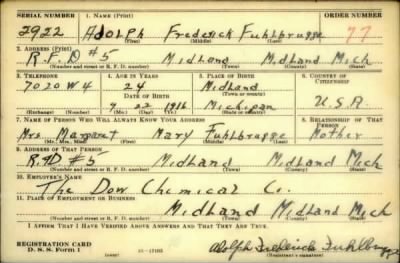 SERIAL NUMBER 1. NAME (Print) ORDER NUMBER
2922 ADOLPH Frederick Fuhlbrugge 77
(First) (Middle) (Last)
2. ADDRESS (Print)
R.F.D #5 Midland Midland Mich
(Number and street or R. F. D. number) (Town) (County) (State)
3. TELEPHONE 4. AGE IN YEARS 5. PLACE OF BIRTH 6. COUNTRY OF CITIZENSHIP
7020W4 24 Midland
DATE OF BIRTH (Town or county)
9 22 1916 Michigan U.S.A.
(Exchange) (Number) (Mo.) (Day) (Yr.) (State or country)
7. NAME OF PERSON WHO WILL ALWAYS KNOW YOUR ADDRESS 8. RELATIONSHIP OF THAT PERSON
Mrs. Margaret Mary Fuhlbrugge Mother
(Mr., Mrs., Miss) (First) (Middle) (Last)
9. ADDRESS OF THAT PERSON
RFD #5 Midland Midland Mich
(Number and street or R. F. D. number) (Town) (County) (State)
10. EMPLOYER'S NAME
The Dow Chemical Co.
11. PLACE OF EMPLOYMENT OR BUSINESS
Midland Midland Mich
(Number and street or R. F. D. number) (Town) (County) (State)
I AFFIRM THAT I HAVE VERIFIED ABOVE ANSWERS AND THAT THEY ARE TRUE.
REGISTRATION CARD
D. S. S. Form 1 (over) Adolph Frederick Fuhlbrugge
(Registrant's signature)